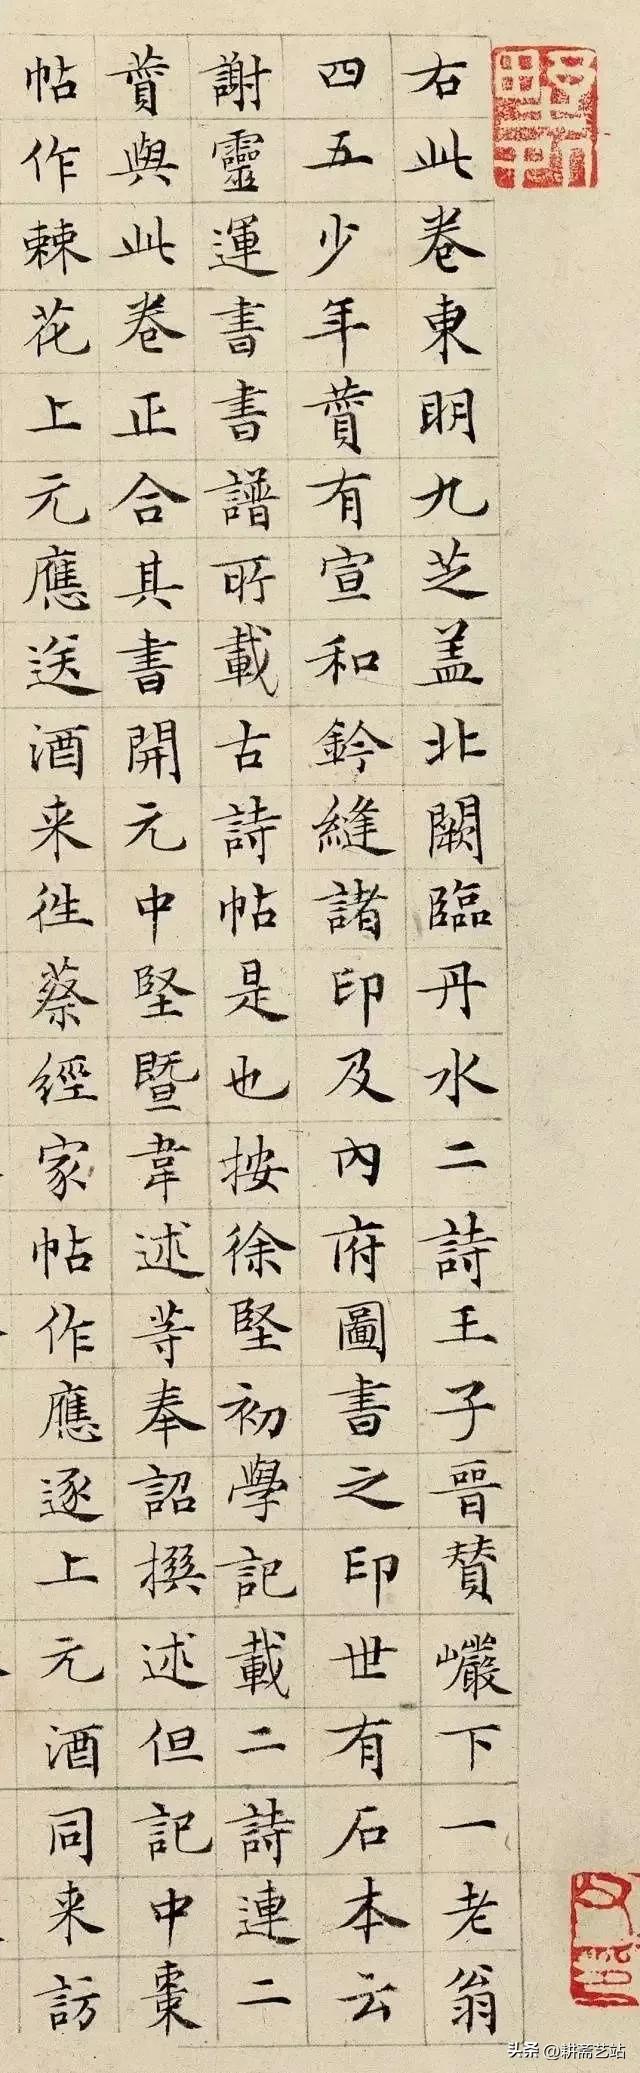 右此卷東明九芝盖北闕臨丹水二詩王子晉賛巗下一老翁
四五少年賛有宣和鈐縫諸印及內府圖書之印世有石本云
謝靈運書書譜所載古詩帖是也按徐堅初學記載二詩連二
賛與此卷正合其書開元中堅暨韋述等奉詔撰述但記中棗
帖作棘花上元應送酒来徃蔡經家帖作應逐上元酒同来訪
头条 @耕斋艺站